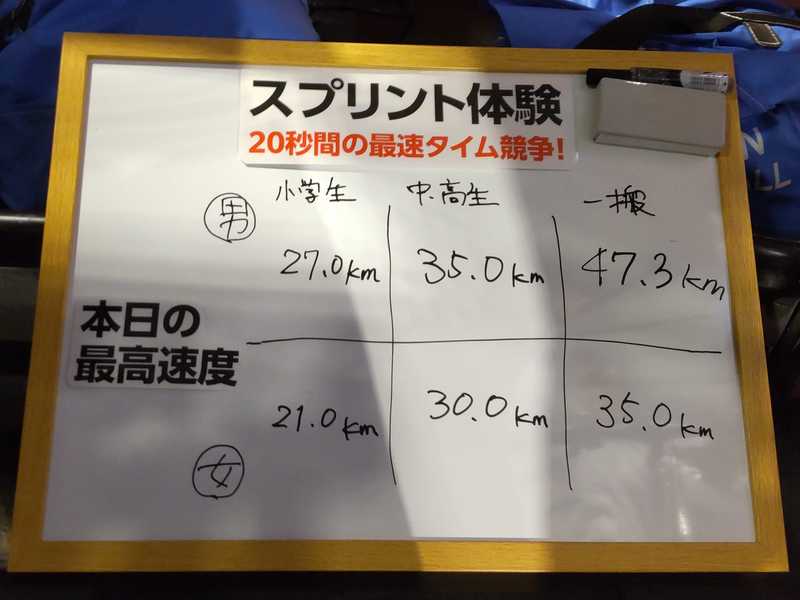 スプリント体験
20秒間の最速タイム競争!
小学生 中・高生 一搬
男 27.0km 35.0km 47.3km
本日の
最高速度
女 21.0km 30.0km 35.0km